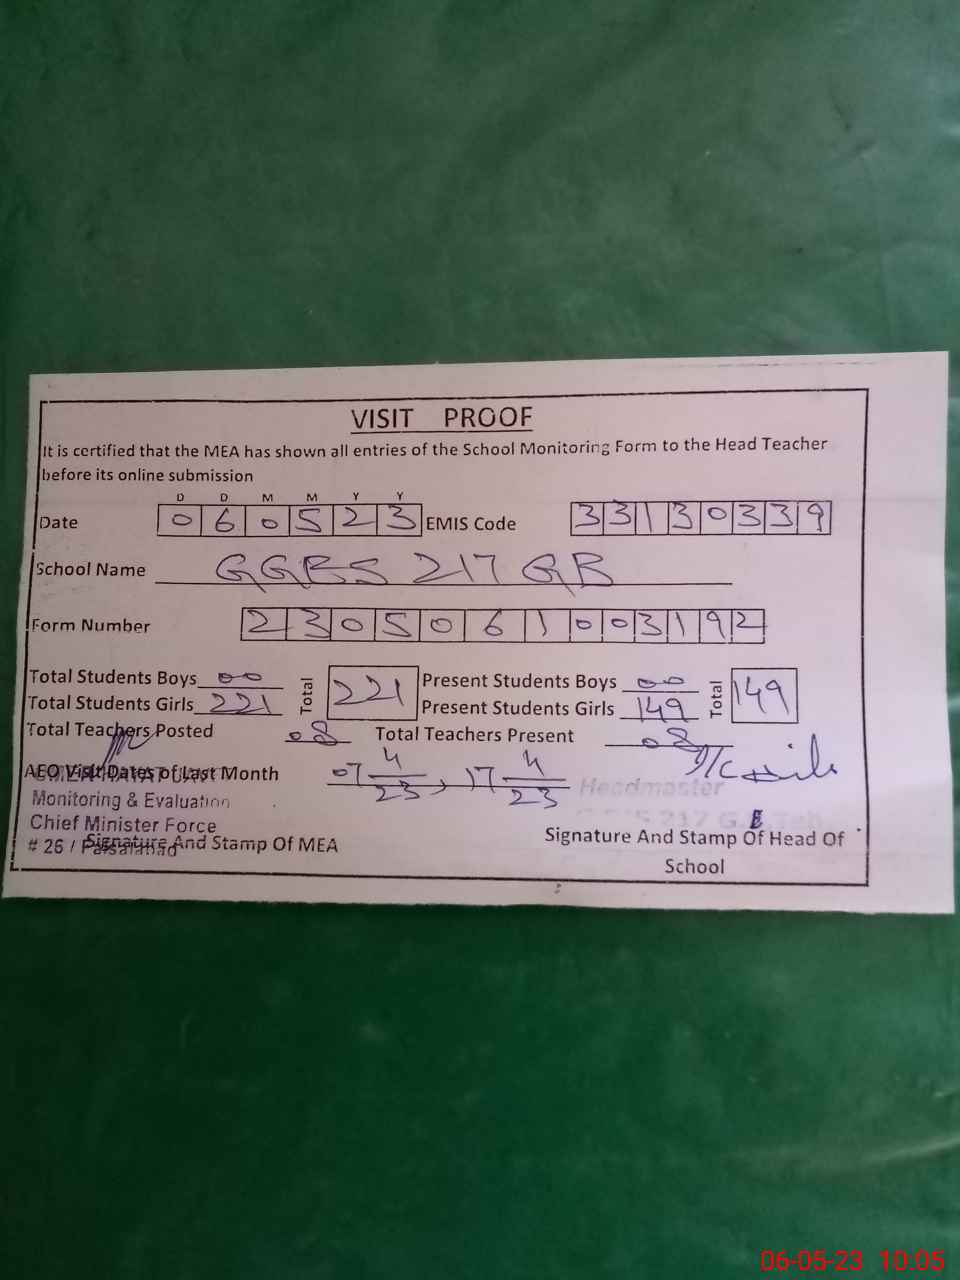 VISIT PROOF
It is certified that the MEA has shown all entries of the School Monitoring Form to the Head Teacher
before its online submission
D D M M Y Y
Date 0 6 0 5 2 3 EMIS Code 3 3 1 3 0 3 3 9
School Name GGES 217 GB
Form Number 2 3 0 5 0 6 1 0 0 3 1 9 2
Total Students Boys 00 Total 221 Present Students Boys 00 Total 149
Total Students Girls 221 Present Students Girls 149
Total Teachers Posted 08 Total Teachers Present 08
AEO Visit Dates of Last Month 07 4/23, 17 4/23
I/C
Headmaster
Monitoring & Evaluation
217 G.B.
Chief Minister Force
# 26 / Faisalabad
Signature And Stamp Of MEA
Signature And Stamp Of Head Of
School
06-05-23 10:05